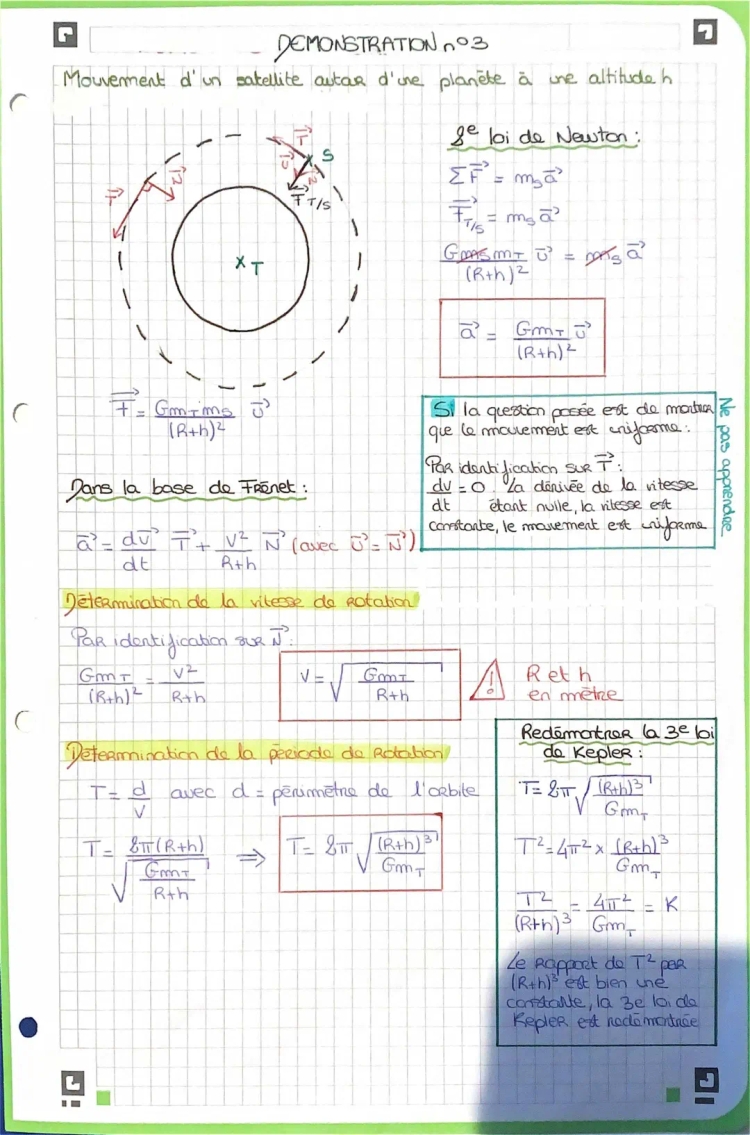 DEMONSTRATION n°3
Mouvement d'un satellite autour d'une planète à une altitude h
T⃗
N⃗
T⃗
U⃗
N⃗
S
F⃗ T/S
T
2e loi de Newton :
ΣF⃗ = mₛa⃗
F⃗T/S = mₛa⃗
GmₛmT/(R+h)² U⃗ = mₛ a⃗
a⃗ = GmT/(R+h)² U⃗
F⃗ = GmTmₛ/(R+h)² U⃗
Si la question posée est de montrer
que le mouvement est uniforme :
Par identification sur T⃗ :
dv/dt = 0. La dérivée de la vitesse
étant nulle, la vitesse est
constante, le mouvement est uniforme
Ne pas apprendre
Dans la base de Frénet :
a⃗ = dv⃗/dt T⃗ + V²/R+h N⃗ (avec U⃗ = N⃗)
Détermination de la vitesse de rotation
Par identification sur N⃗ :
GmT/(R+h)² = V²/R+h
V = √(GmT/R+h)
! R et h
en mètre
Détermination de la période de rotation
T = d/V avec d = périmètre de l'orbite
T = 2π(R+h)/√(GmT/R+h) ⇒ T = 2π √((R+h)³/GmT)
Redémontrer la 3e loi
de Kepler :
T = 2π √((R+h)³/GmT)
T² = 4π² × (R+h)³/GmT
T²/(R+h)³ = 4π²/GmT = K
Le rapport de T² par
(R+h)³ est bien une
constante, la 3e loi de
Kepler est redémontrée